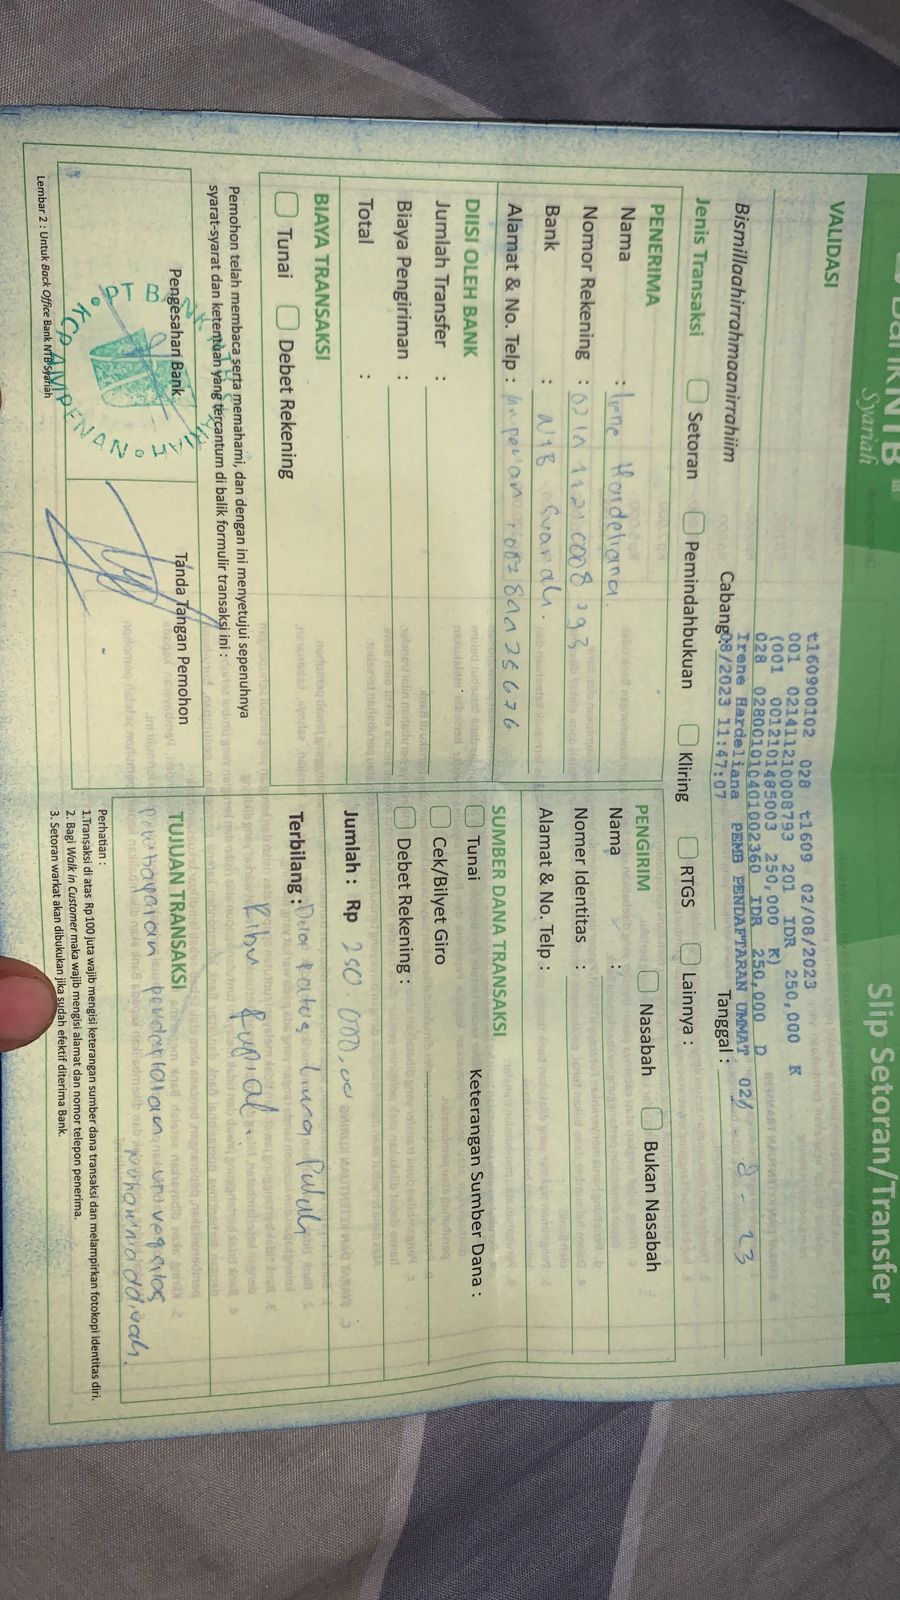 BankNTB
Syariah
Slip Setoran/Transfer
VALIDASI
t160900102 028 t1609 02/08/2023
001 0214112100087793 201 IDR 250,000 K
(001 0012101485003 250,000 K)
028 0280010104001002360 IDR 250,000 D
Irene Hardeliana PEMB PENDAFTARAN UMMAT 02
08/2023 11:47:07
Bismillaahirrahmaanirrahiim
Cabang:
Tanggal : - 8 - 23
Jenis Transaksi Setoran Pemindahbukuan Kliring RTGS Lainnya :
PENERIMA
Nama : Irene Hardeliana
Nomor Rekening :
Bank : NTB Syariah.
Alamat & No. Telp : Ampenan
PENGIRIM Nasabah Bukan Nasabah
Nama :
Nomer Identitas :
Alamat & No. Telp :
DIISI OLEH BANK
Jumlah Transfer :
Biaya Pengiriman :
Total :
SUMBER DANA TRANSAKSI
Keterangan Sumber Dana :
Tunai
Cek/Bilyet Giro
Debet Rekening :
BIAYA TRANSAKSI
Tunai Debet Rekening
Jumlah : Rp 250.000,00
Terbilang : Dua ratus lima Puluh
Ribu Rupiah.
Pemohon telah membaca serta memahami, dan dengan ini menyetujui sepenuhnya
syarat-syarat dan ketentuan yang tercantum di balik formulir transaksi ini :
Pengesahan Bank
Tanda Tangan Pemohon
PT BANK NTB SYARIAH
KCP AMPENAN
TUJUAN TRANSAKSI
Pembayaran pendaftaran universitas
Muhammadiyah.
Perhatian :
1.Transaksi di atas Rp 100 juta wajib mengisi keterangan sumber dana transaksi dan melampirkan fotokopi identitas diri.
2. Bagi Walk in Customer maka wajib mengisi alamat dan nomor telepon penerima.
3. Setoran warkat akan dibukukan jika sudah efektif diterima Bank.
Lembar 2 : Untuk Back Office Bank NTB Syariah